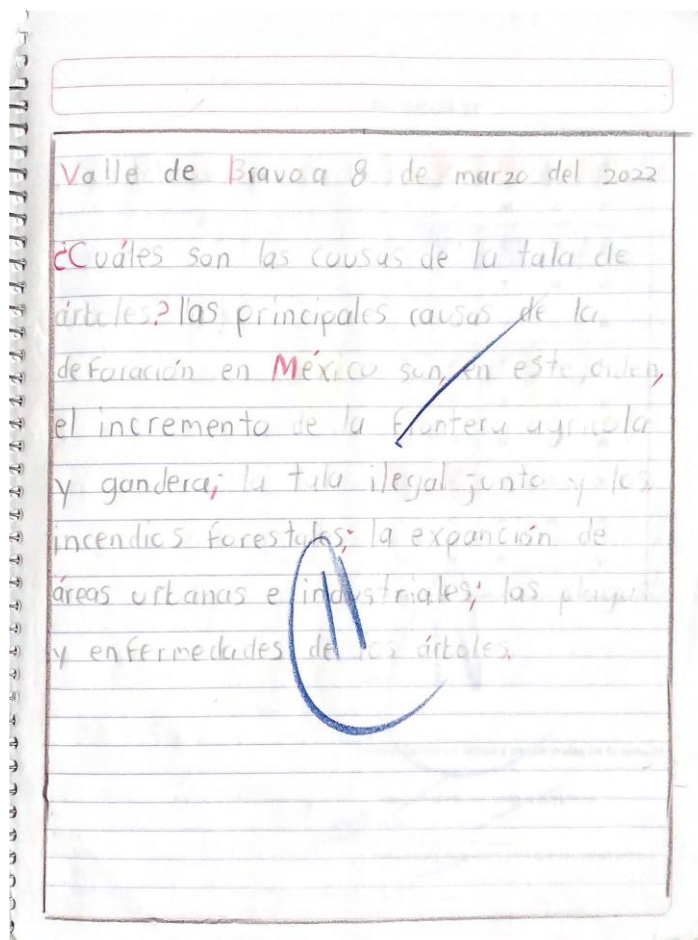 Valle de Bravo a 8 de marzo del 2022
¿Cuáles son las causas de la tala de
árboles? las principales causas de la
deforación en México son, en este orden,
el incremento de la frontera agrícola
y gandera; la tala ilegal junto y los
incendios forestales; la expanción de
áreas urbanas e industriales; las plagas
y enfermedades de los árboles.